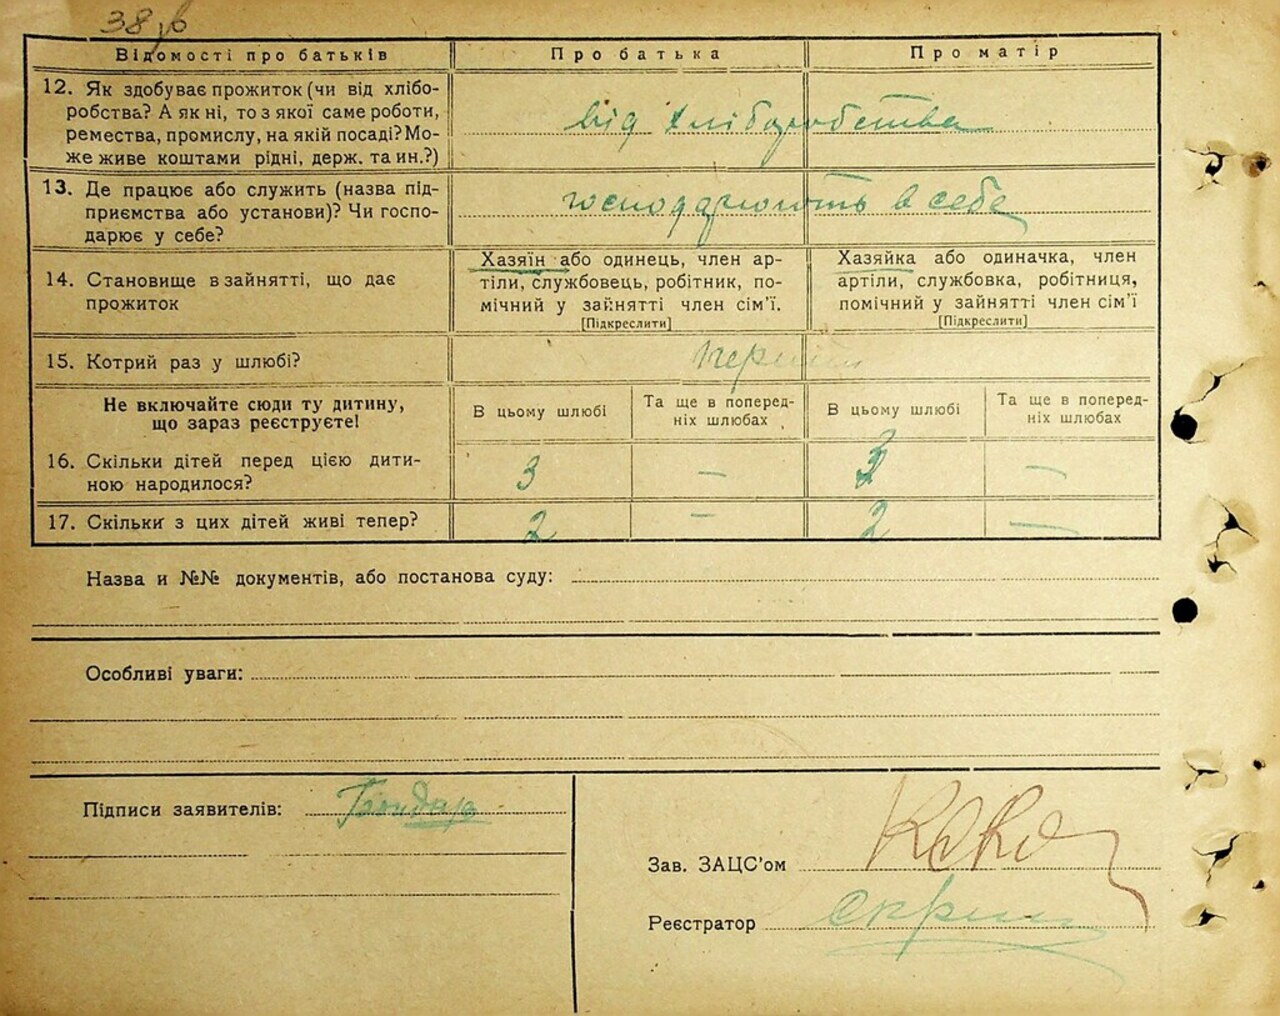 38
Відомості про батьків
Про батька
Про матір
12. Як здобуває прожиток (чи від хлібо-
робства? А як ні, то з якої саме роботи,
ремества, промислу, на якій посаді? Мо-
же живе коштами рідні, держ. та ин.?)
від хліборобства
13. Де працює або служить (назва під-
приємства або установи)? Чи госпо-
дарює у себе?
господарюють в себе
14. Становище в зайнятті, що дає
прожиток
Хазяїн або одинець, член ар-
тіли, службовець, робітник, по-
мічний у зайнятті член сім'ї.
[Підкреслити]
Хазяйка або одиначка, член
артіли, службовка, робітниця,
помічний у зайнятті член сім'ї
[Підкреслити]
15. Котрий раз у шлюбі?
Не включайте сюди ту дитину,
що зараз реєструєте!
В цьому шлюбі
Та ще в поперед-
ніх шлюбах
В цьому шлюбі
Та ще в поперед-
ніх шлюбах
16. Скільки дітей перед цією дити-
ною народилося?
3 — 3 —
17. Скільки з цих дітей живі тепер?
2 — 2 —
Назва и №№ документів, або постанова суду:
Особливі уваги:
Підписи заявителів: Бондар
Зав. ЗАЦС'ом
Реєстратор